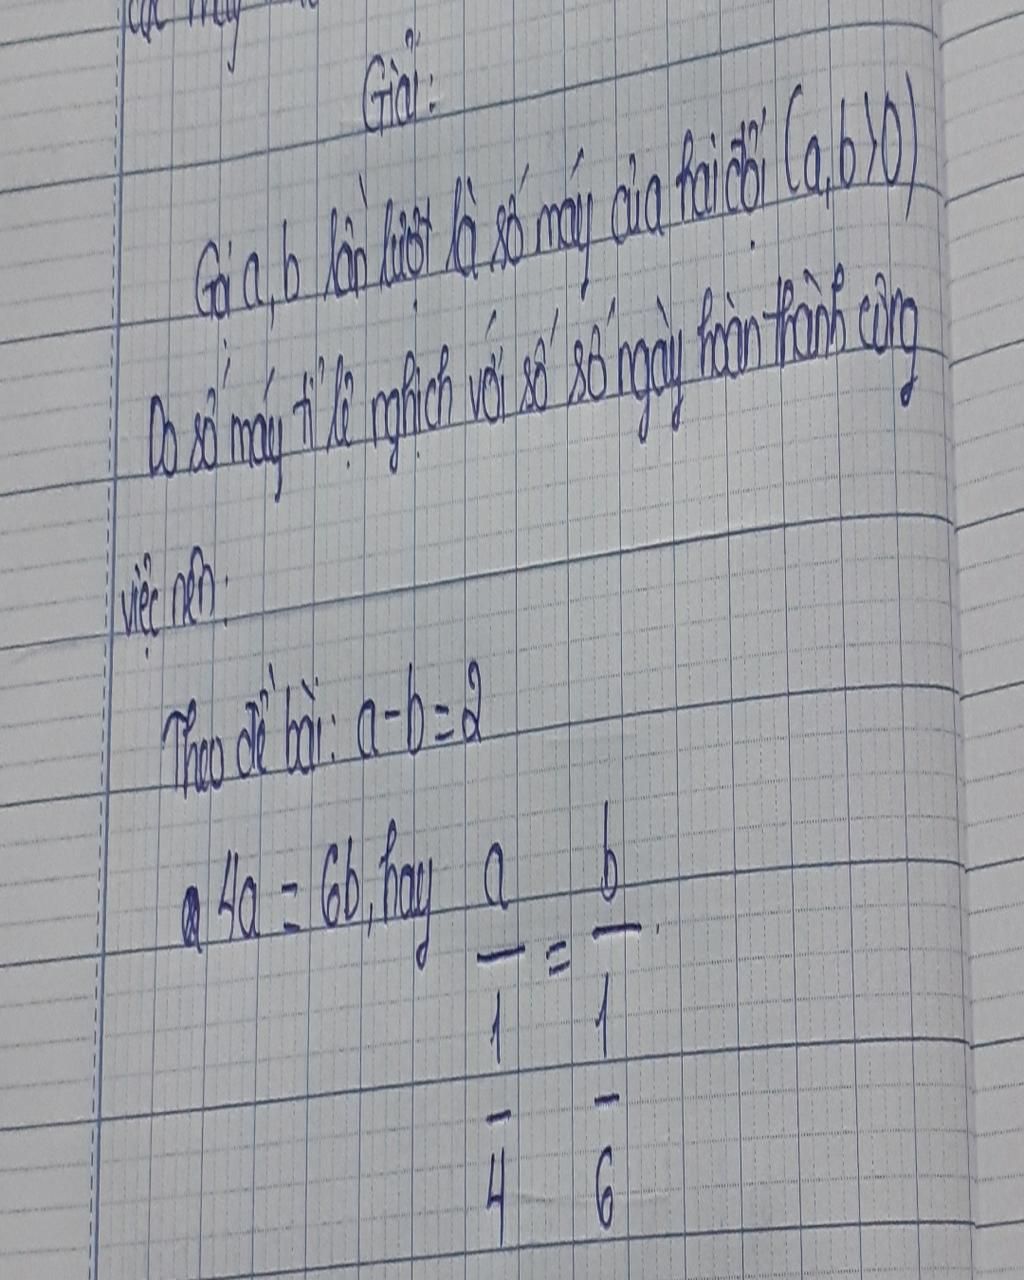 Giải:
Gọi a, b lần lượt là số máy của hai đội (a, b > 0)
Do số máy tỉ lệ nghịch với số số ngày hoàn thành công
việc nên:
Theo đề bài: a - b = 2
4a = 6b, hay a/(1/4) = b/(1/6).